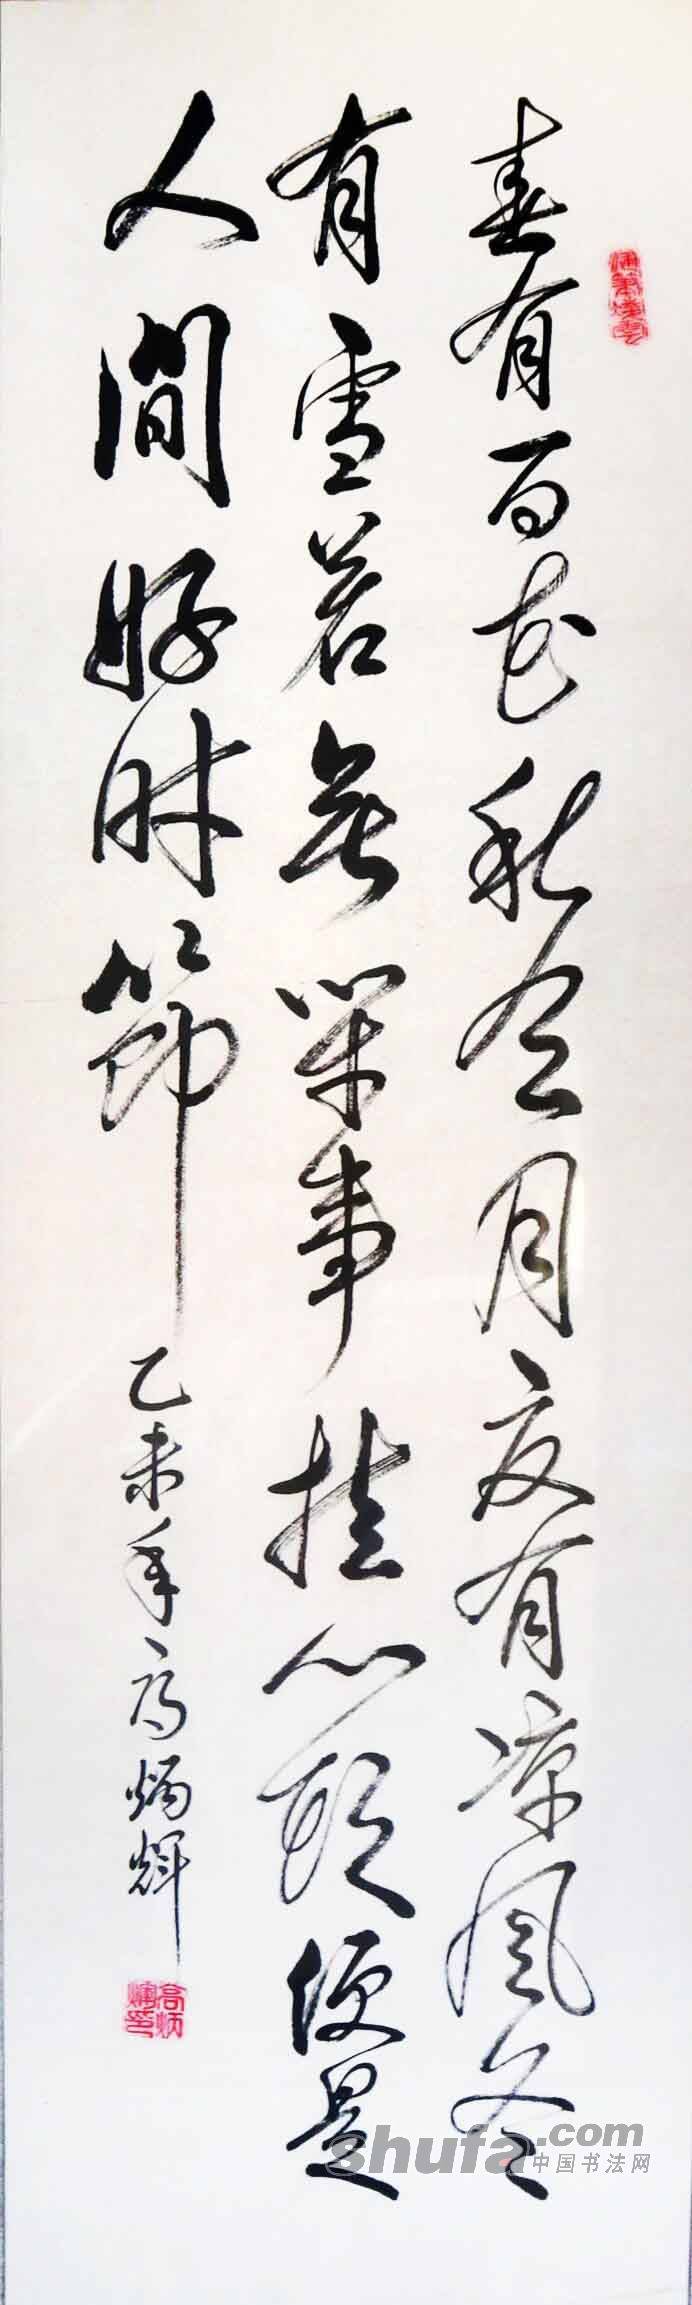 春有百花秋有月夏有凉风冬
有雪若无闲事挂心头便是
人间好时节
乙未年高炳辉
shufa.com
中国书法网